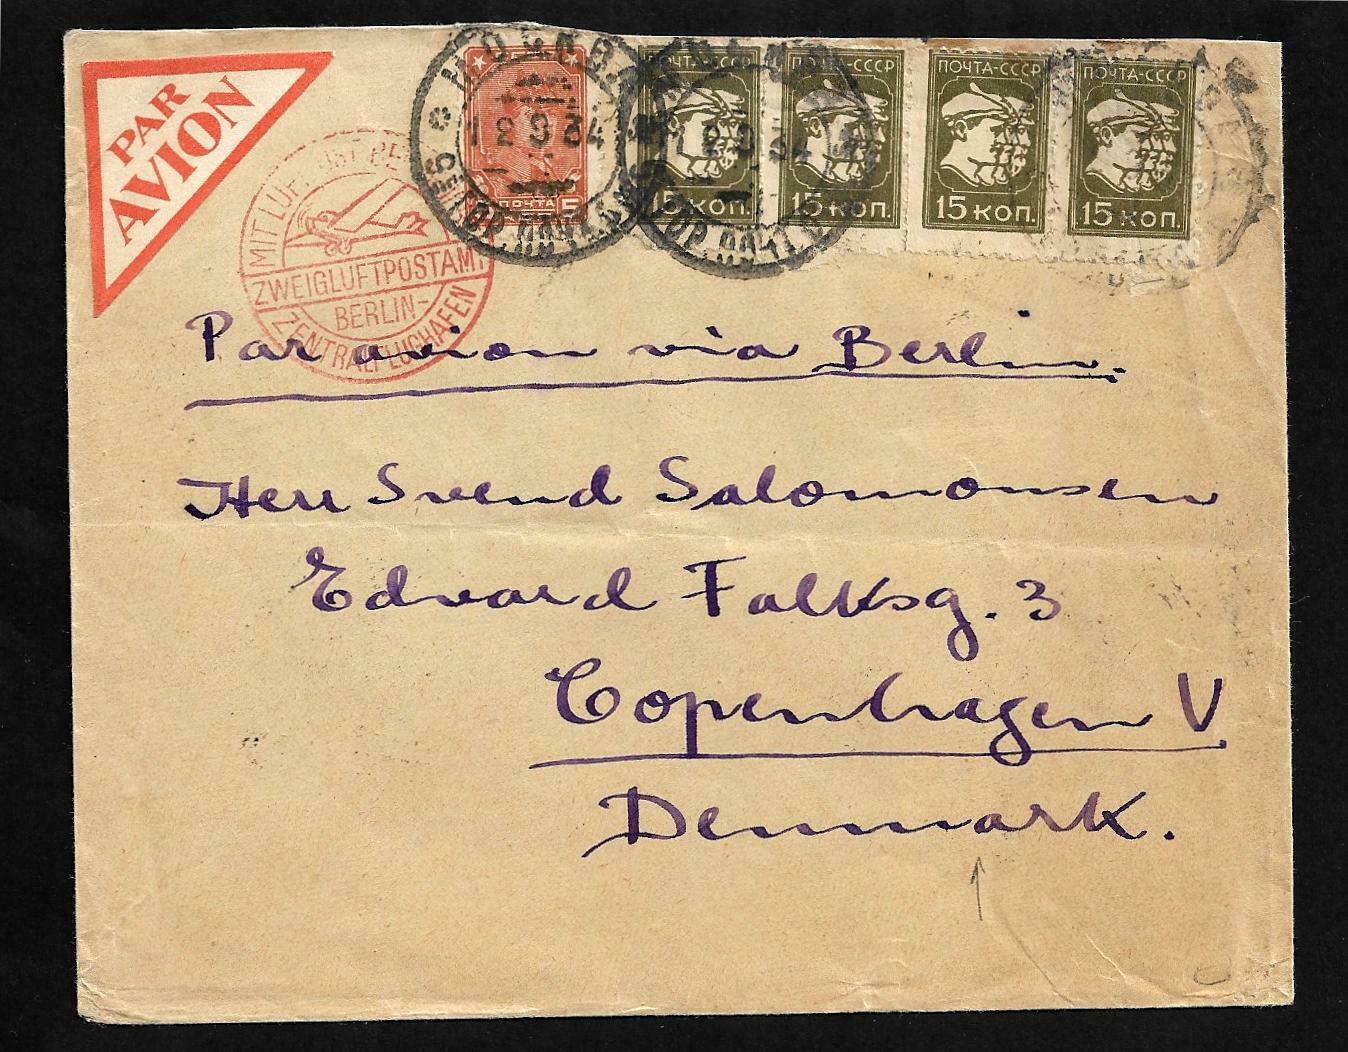 PAR
AVION
МОСКВА
12 9 34
ПОЧТА 5
ПОЧТА-СССР
15 КОП.
ПОЧТА-СССР
15 КОП.
ПОЧТА-СССР
15 КОП.
ПОЧТА-СССР
15 КОП.
MIT LUFTPOST
ZWEIGLUFTPOSTAMT
BERLIN-
ZENTRALFLUGHAFEN
Par avion via Berlin.
Herr Svend Salomonsen
Edvard Falksg. 3
Copenhagen V
Denmark.